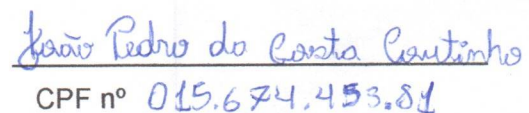 João Pedro da Costa Coutinho
CPF nº 015.674.453.81